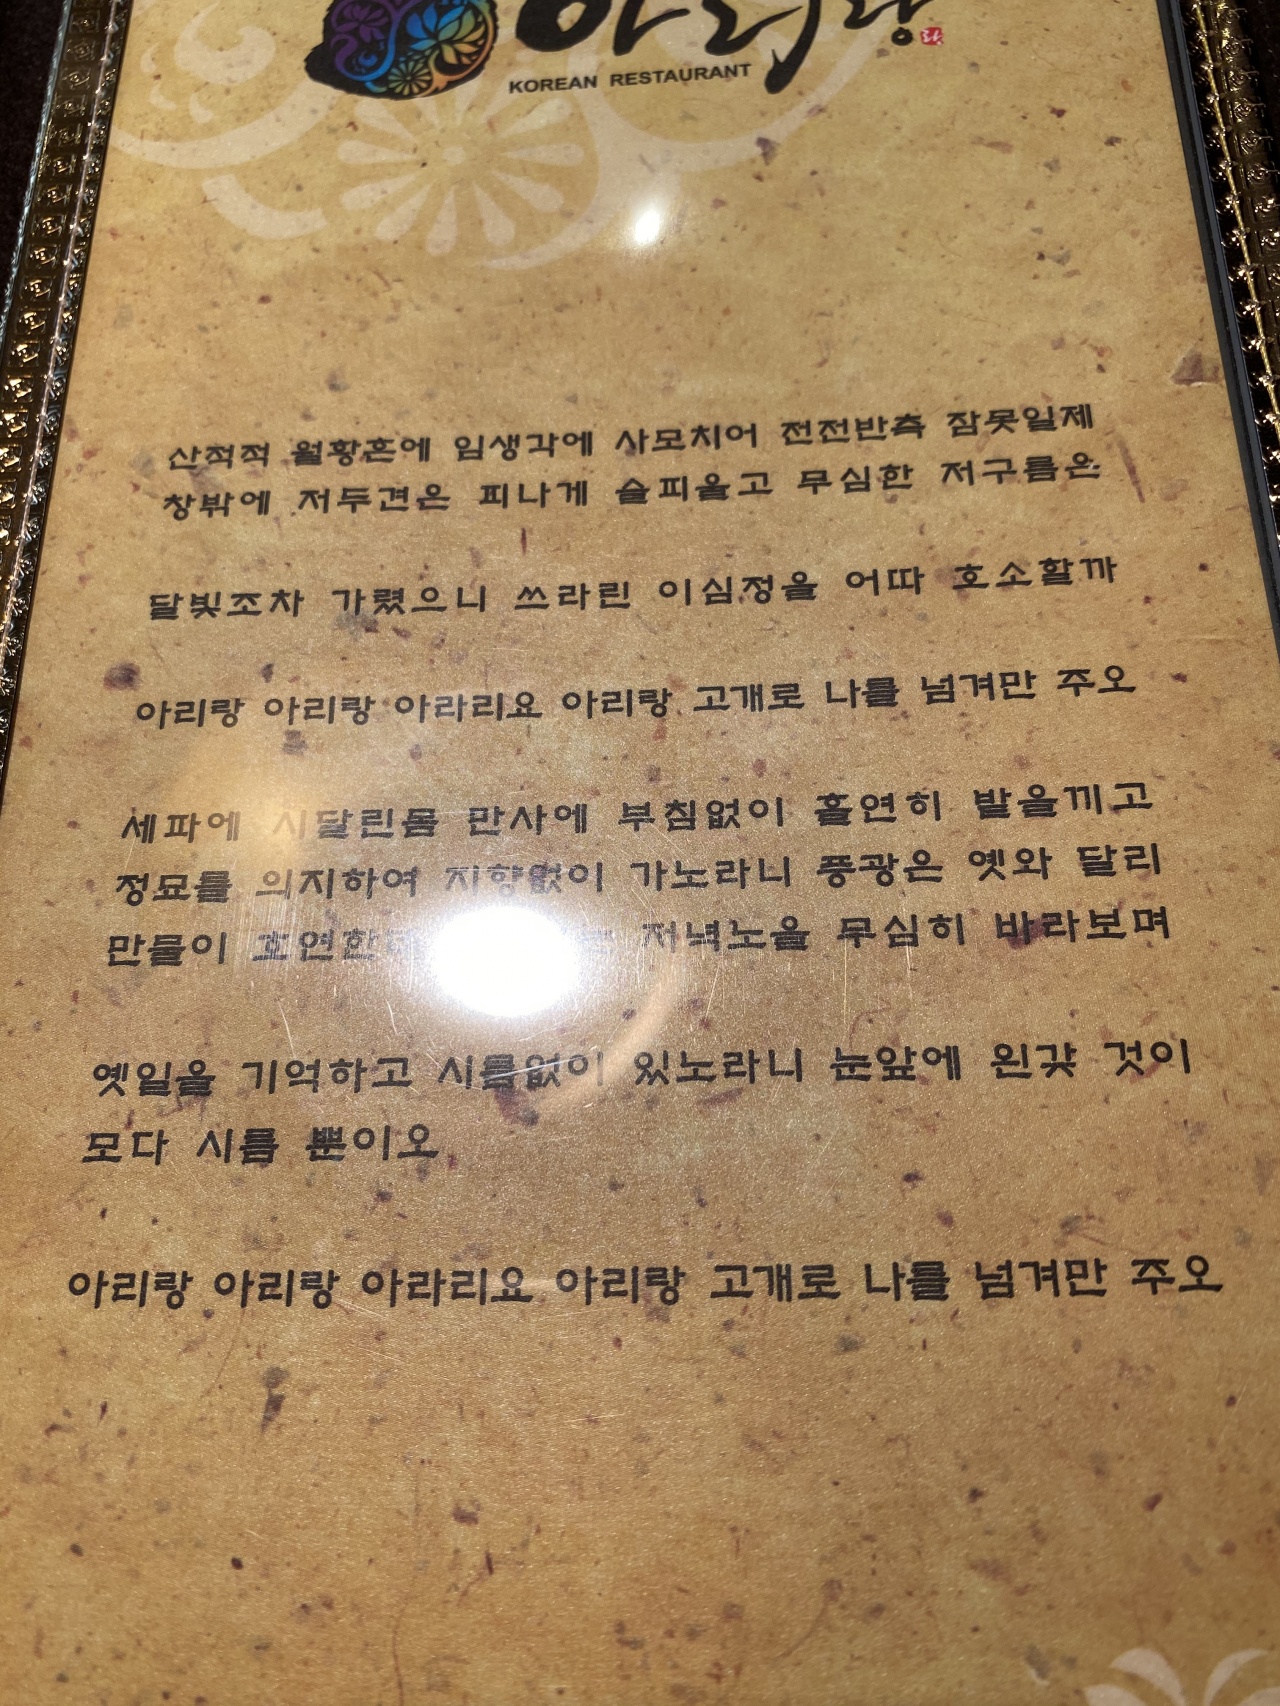 아리랑
KOREAN RESTAURANT
산적적 월황혼에 임생각에 사모치어 전전반측 잠못일제
창밖에 저두견은 피나게 슬피울고 무심한 저구름은
달빛조차 가렸으니 쓰라린 이심정을 어따 호소할까
아리랑 아리랑 아라리요 아리랑 고개로 나를 넘겨만 주오
세파에 시달린몸 만사에 부침없이 홀연히 발을끼고
정묘를 의지하여 지향없이 가노라니 풍광은 옛와 달리
만믈이 호연한데 저녁노을 무심히 바라보며
옛일을 기억하고 시름없이 있노라니 눈앞에 왼갖 것이
모다 시름 뿐이오
아리랑 아리랑 아라리요 아리랑 고개로 나를 넘겨만 주오